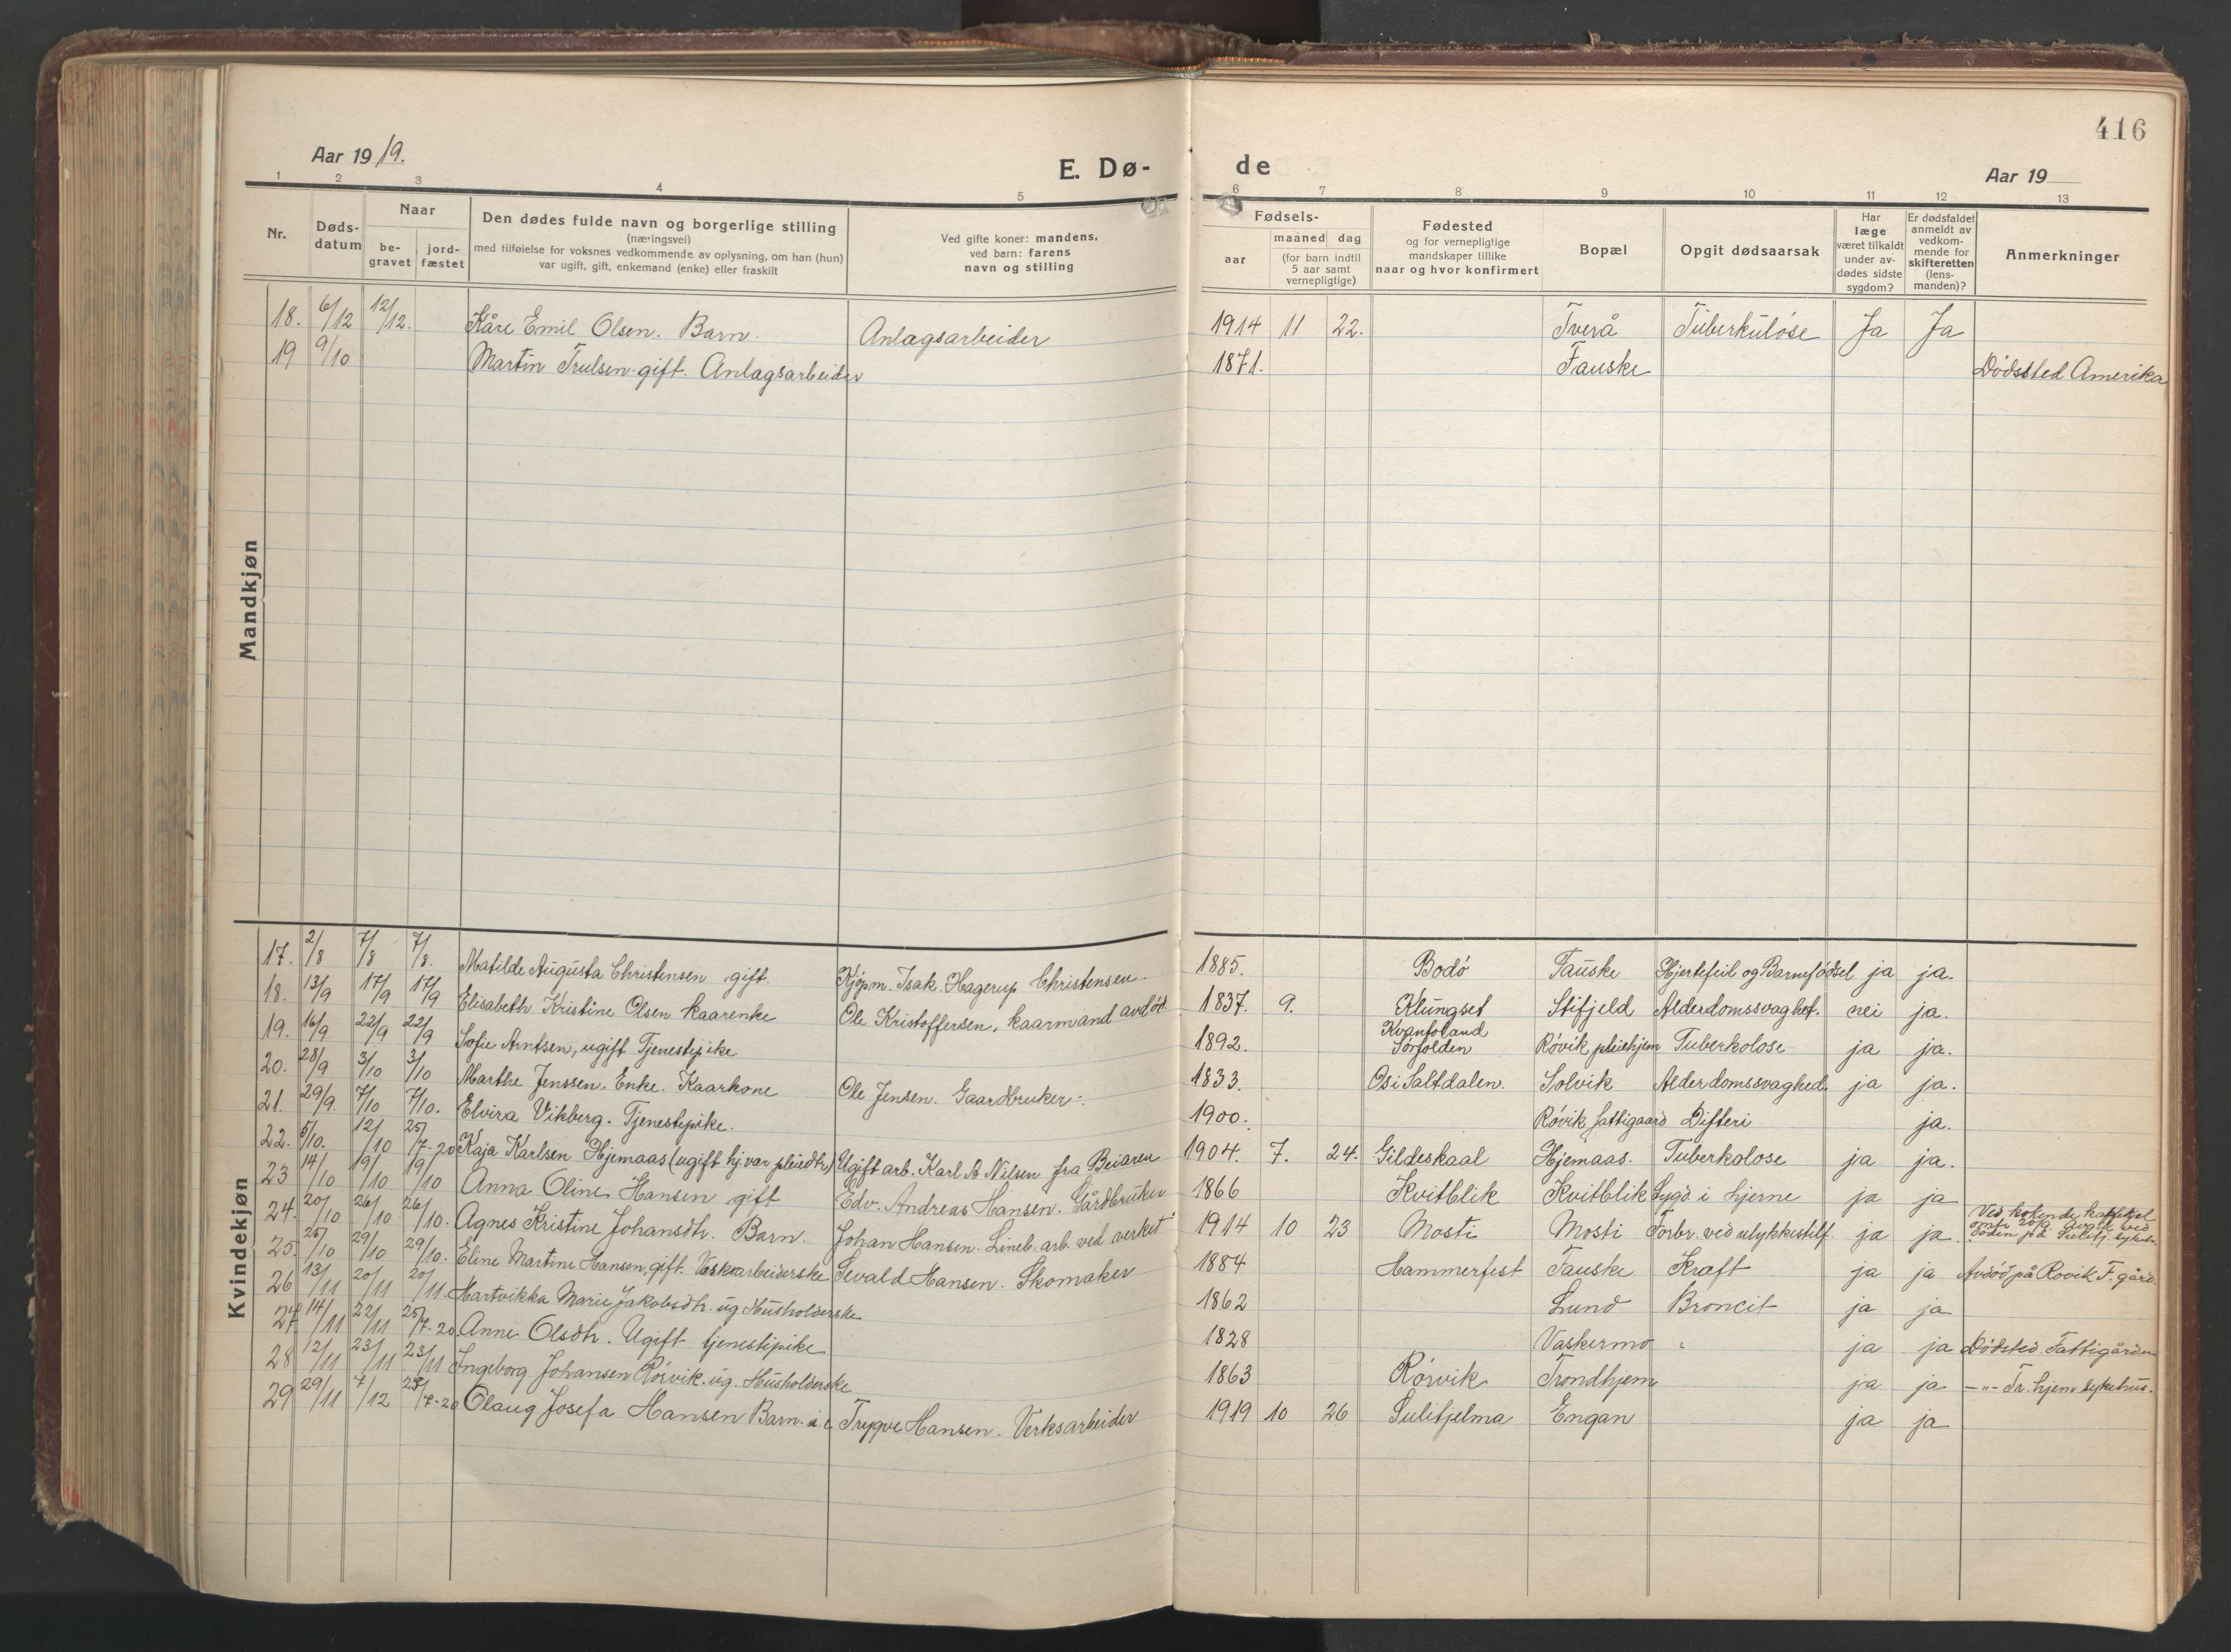 416
Aar 1919.
E. Dø-
de
Aar 19
1 2 3 4 5 6 7 8 9 10 11 12 13
Nr. Døds-datum Naar be-gravet jord-fæstet Den dødes fulde navn og borgerlige stilling (næringsvei) med tilføielse for voksnes vedkommende av oplysning, om han (hun) var ugift, gift, enkemand (enke) eller fraskilt Ved gifte koner: mandens, ved barn: farens navn og stilling Fødsels- aar maaned dag (for barn indtil 5 aar samt vernepligtige) Fødested og for vernepligtige mandskaper tillike naar og hvor konfirmert Bopæl Opgit dødsaarsak Har læge været tilkaldt under av-dødes sidste sygdom? Er dødsfaldet anmeldt av vedkom-mende for skifteretten (lens-manden)? Anmerkninger
Mandkjøn
18. 6/12 12/12. Kåre Emil Olsen. Barn. Anlagsarbeider 1914 11 22. Tverå Tuberkuløse Ja Ja
19 9/10 Martin Trulsen gift. Anlagsarbeider 1871. Fauske Dødssted Amerika
Kvindekjøn
17. 2/8 7/8 7/8. Matilde Augusta Christensen gift. Kjøpm. Isak. Hagerup Christensen. 1885. Bodø Fauske Hjertefeil og Barnefødsel ja ja.
18. 13/9 17/9 17/9 Elisabeth Kristine Olsen kaarenke Ole Kristoffersen, kaarmand avdød 1837. 9. Klungset Stifjeld Alderdomssvaghet. nei ja.
19. 16/9 22/9 22/9 Sofie Arntsen, ugift Tjenestepike 1892. Kvantoland Sørfolden Røvik pleiehjem Tuberkolose ja ja.
20. 28/9 3/10 3/10 Marthe Jenssen. Enke. Kaarkone Ole Jensen. Gaardbruker. 1833. Os i Saltdalen. Solvik Alderdomssvaghed ja ja.
21. 29/9. 7/10 7/10. Elvira Vikberg. Tjenestepike. 1900. Røvik fattigaard Difteri ja.
22. 5/10. 12/10 25/7-20 Kaja Karlsen Hjemaas (ugift hj.var pleiedtr) Ugift arb. Karl A Nilsen fra Beiaren 1904. 7. 24. Gildeskaal Hjemaas. Tuberkolose ja ja.
23 14/10 19/10 19/10 Anna Oline Hansen gift Edv. Andreas Hansen. Gårdbruker 1866 Kvitblik Kvitblik Sygd i hjerne ja ja
24. 20/10 26/10 26/10. Agnes Kristine Johansdtr. Barn. Johan Hansen. Lineb. arb. ved verket 1914 10 23 Mosti Mosti Forbr. ved ulykkestilf. ja ja. Ved kokende
25. 25/10 29/10 29/10. Eline Martine Hansen, gift. Vaskearbeiderske Sevald Hansen. Skomaker 1884 Hammerfest Fauske Kræft ja ja Avdød på Røvik F. gård.
26 13/11 20/11 20/11. Hartvikka Marie Jakobsdtr. ug. Husholderske 1862 Lund Broncit ja ja
27. 14/11 22/11 25/7-20. Anne Olsdtr. Ugift tjenestepike 1828 Vaskermo ja ja Dødsted. Fattigården
28 12/11 23/11 23/11 Ingeborg Johansen Rørvik. ug. Husholderske 1863 Rørvik Trondhjem ja ja -"- Tr.hjem sykehus.
29 29/11 7/12 25/7-20 Olaug Josefa Hansen Barn. Trygve Hansen. Verksarbeider 1919 10 26 Sulitjelma Engan ja ja